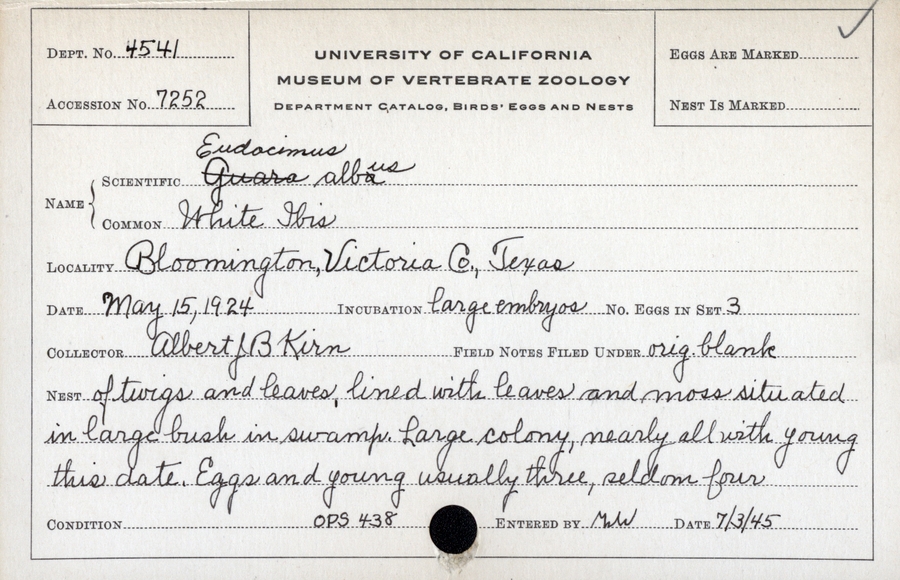 DEPT. No. 4541
ACCESSION No. 7252
UNIVERSITY OF CALIFORNIA
MUSEUM OF VERTEBRATE ZOOLOGY
DEPARTMENT CATALOG, BIRDS' EGGS AND NESTS
EGGS ARE MARKED
NEST IS MARKED
Eudocimus
NAME
SCIENTIFIC Guara albus
COMMON White Ibis
LOCALITY Bloomington, Victoria Co., Texas
DATE May 15, 1924 INCUBATION large embryos No. EGGS IN SET 3
COLLECTOR Albert J B Kirn FIELD NOTES FILED UNDER orig. blank
NEST of twigs and leaves, lined with leaves and moss situated
in large bush in swamp. Large colony, nearly all with young
this date. Eggs and young usually three, seldom four
CONDITION OPS 438 ENTERED BY DATE 7/3/45